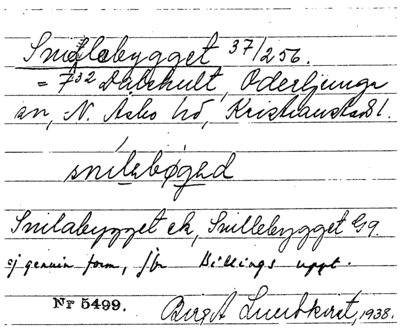 Snillebygget 37/256.
= 7³² Dalshult, Oderljunga
sn, N. Åsbo hd, Kristianstads l.
snilabøged
Snilabygget ek, Snillebygget G9.
ej genuin form, jfr Billings uppt.
Nr 5499. Birgit 1938.